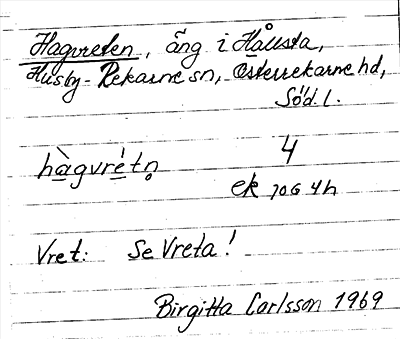 Hagvreten, äng i Hållsta,
Husby-Rekarne sn, Österrekarne hd,
Söd. l.
hàgvré̀tn̥ 4
ek 10G 4h
Vret: Se Vreta!
Birgitta Carlsson 1969